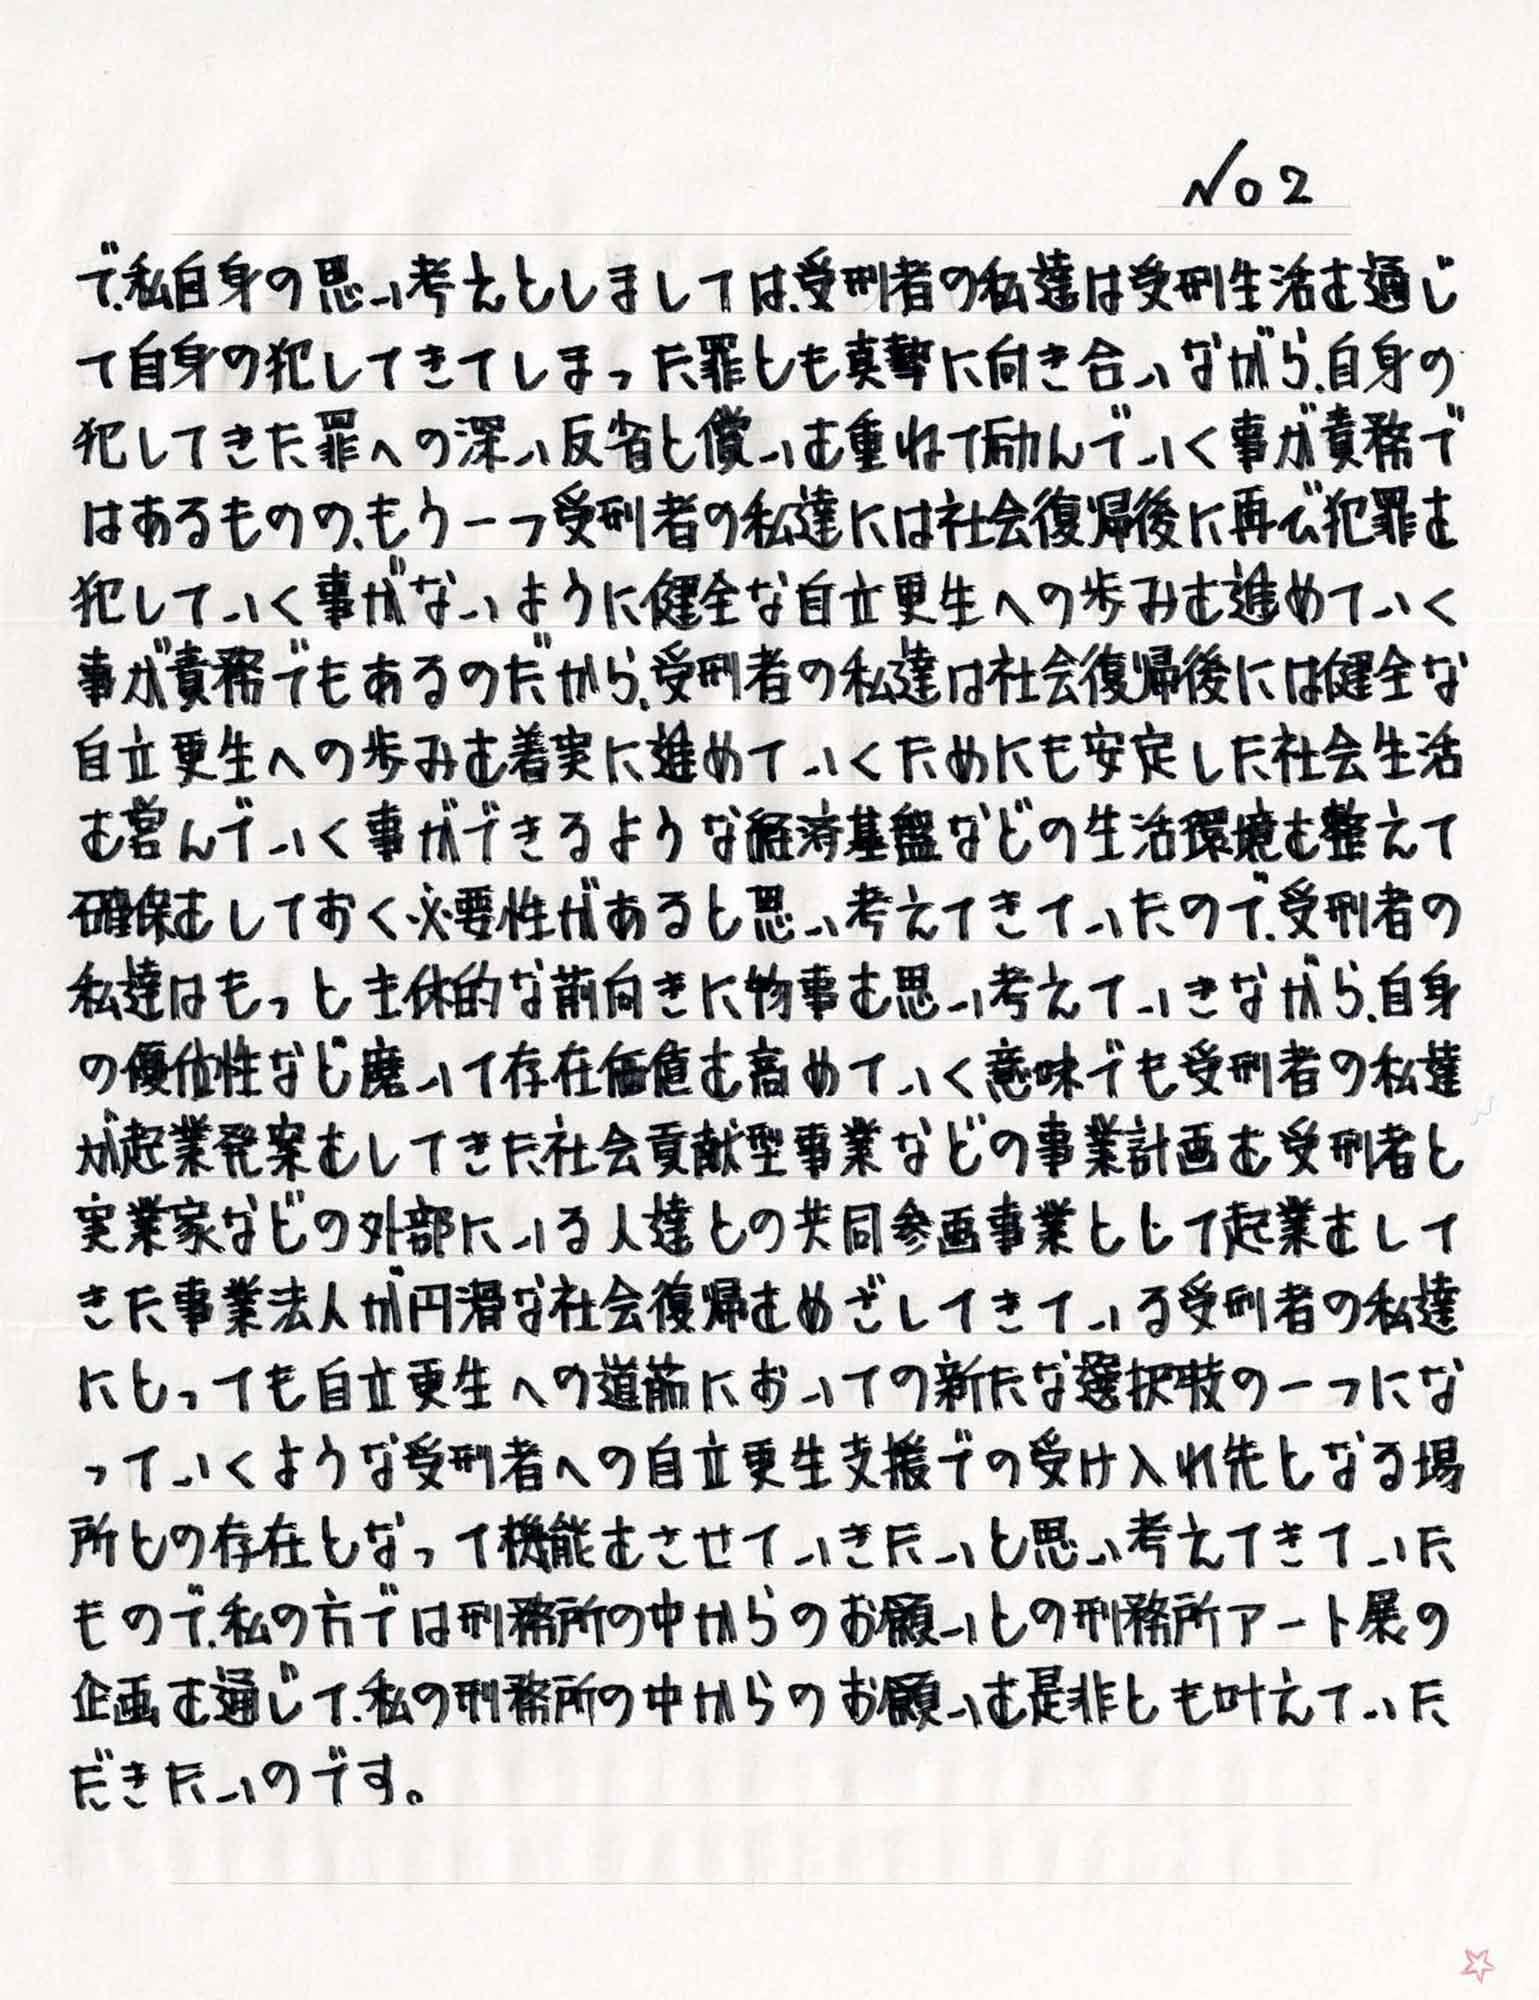 No2
で、私自身の思い考えとしましては、受刑者の私達は受刑生活を通じ
て自身の犯してきてしまった罪とも真摯に向き合いながら、自身の
犯してきた罪への深い反省と償いを重ねて励んでいく事が責務で
はあるものの、もう一つ受刑者の私達には社会復帰後に再び犯罪を
犯していく事がないように健全な自立更生への歩みを進めていく
事が責務でもあるのだから、受刑者の私達は社会復帰後には健全な
自立更生への歩みを着実に進めていくためにも安定した社会生活
を営んでいく事ができるような経済基盤などの生活環境を整えて
確保をしておく必要性があると思い考えてきていたので、受刑者の
私達はもっと主体的な前向きに物事を思い考えていきながら、自身
の優位性など磨いて存在価値を高めていく意味でも受刑者の私達
が起業発案をしてきた社会貢献型事業などの事業計画を受刑者と
実業家などの外部にいる人達との共同参画事業として起業をして
きた事業法人が円滑な社会復帰をめざしてきている受刑者の私達
にとっても自立更生への道筋においての新たな選択肢の一つにな
っていくような受刑者への自立更生支援での受け入れ先となる場
所との存在となって機能をさせていきたいと思い考えてきていた
もので、私の方では刑務所の中からのお願いとの刑務所アート展の
企画を通じて、私の刑務所の中からのお願いを是非とも叶えていた
だきたいのです。